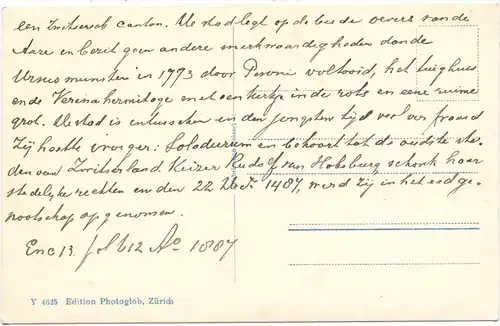 een Zwitsersch canton. De stad legt op de beide oevers van de
Aare en bezit geen andere merkwaardigheden dan de
Ursusmunster in 1773 door Pisoni voltooid, het tuighuis
en de Verena hermitage met een kerkje in de rots en eene ruime
grot. De stad is intusschen in den jongsten tijd veel verfraaid
Zij heette vroeger: Solodurum en behoort tot de oudste ste-
den van Zwitserland. Keizer Rudolf van Habsburg schonk haar
stedelyke rechten en den 22 Dec. 1481, werd zij in het eedge-
nootschap opgenomen.
Enc 13. fol 612 Ao 1887
Y 4625 Edition Photoglob, Zürich